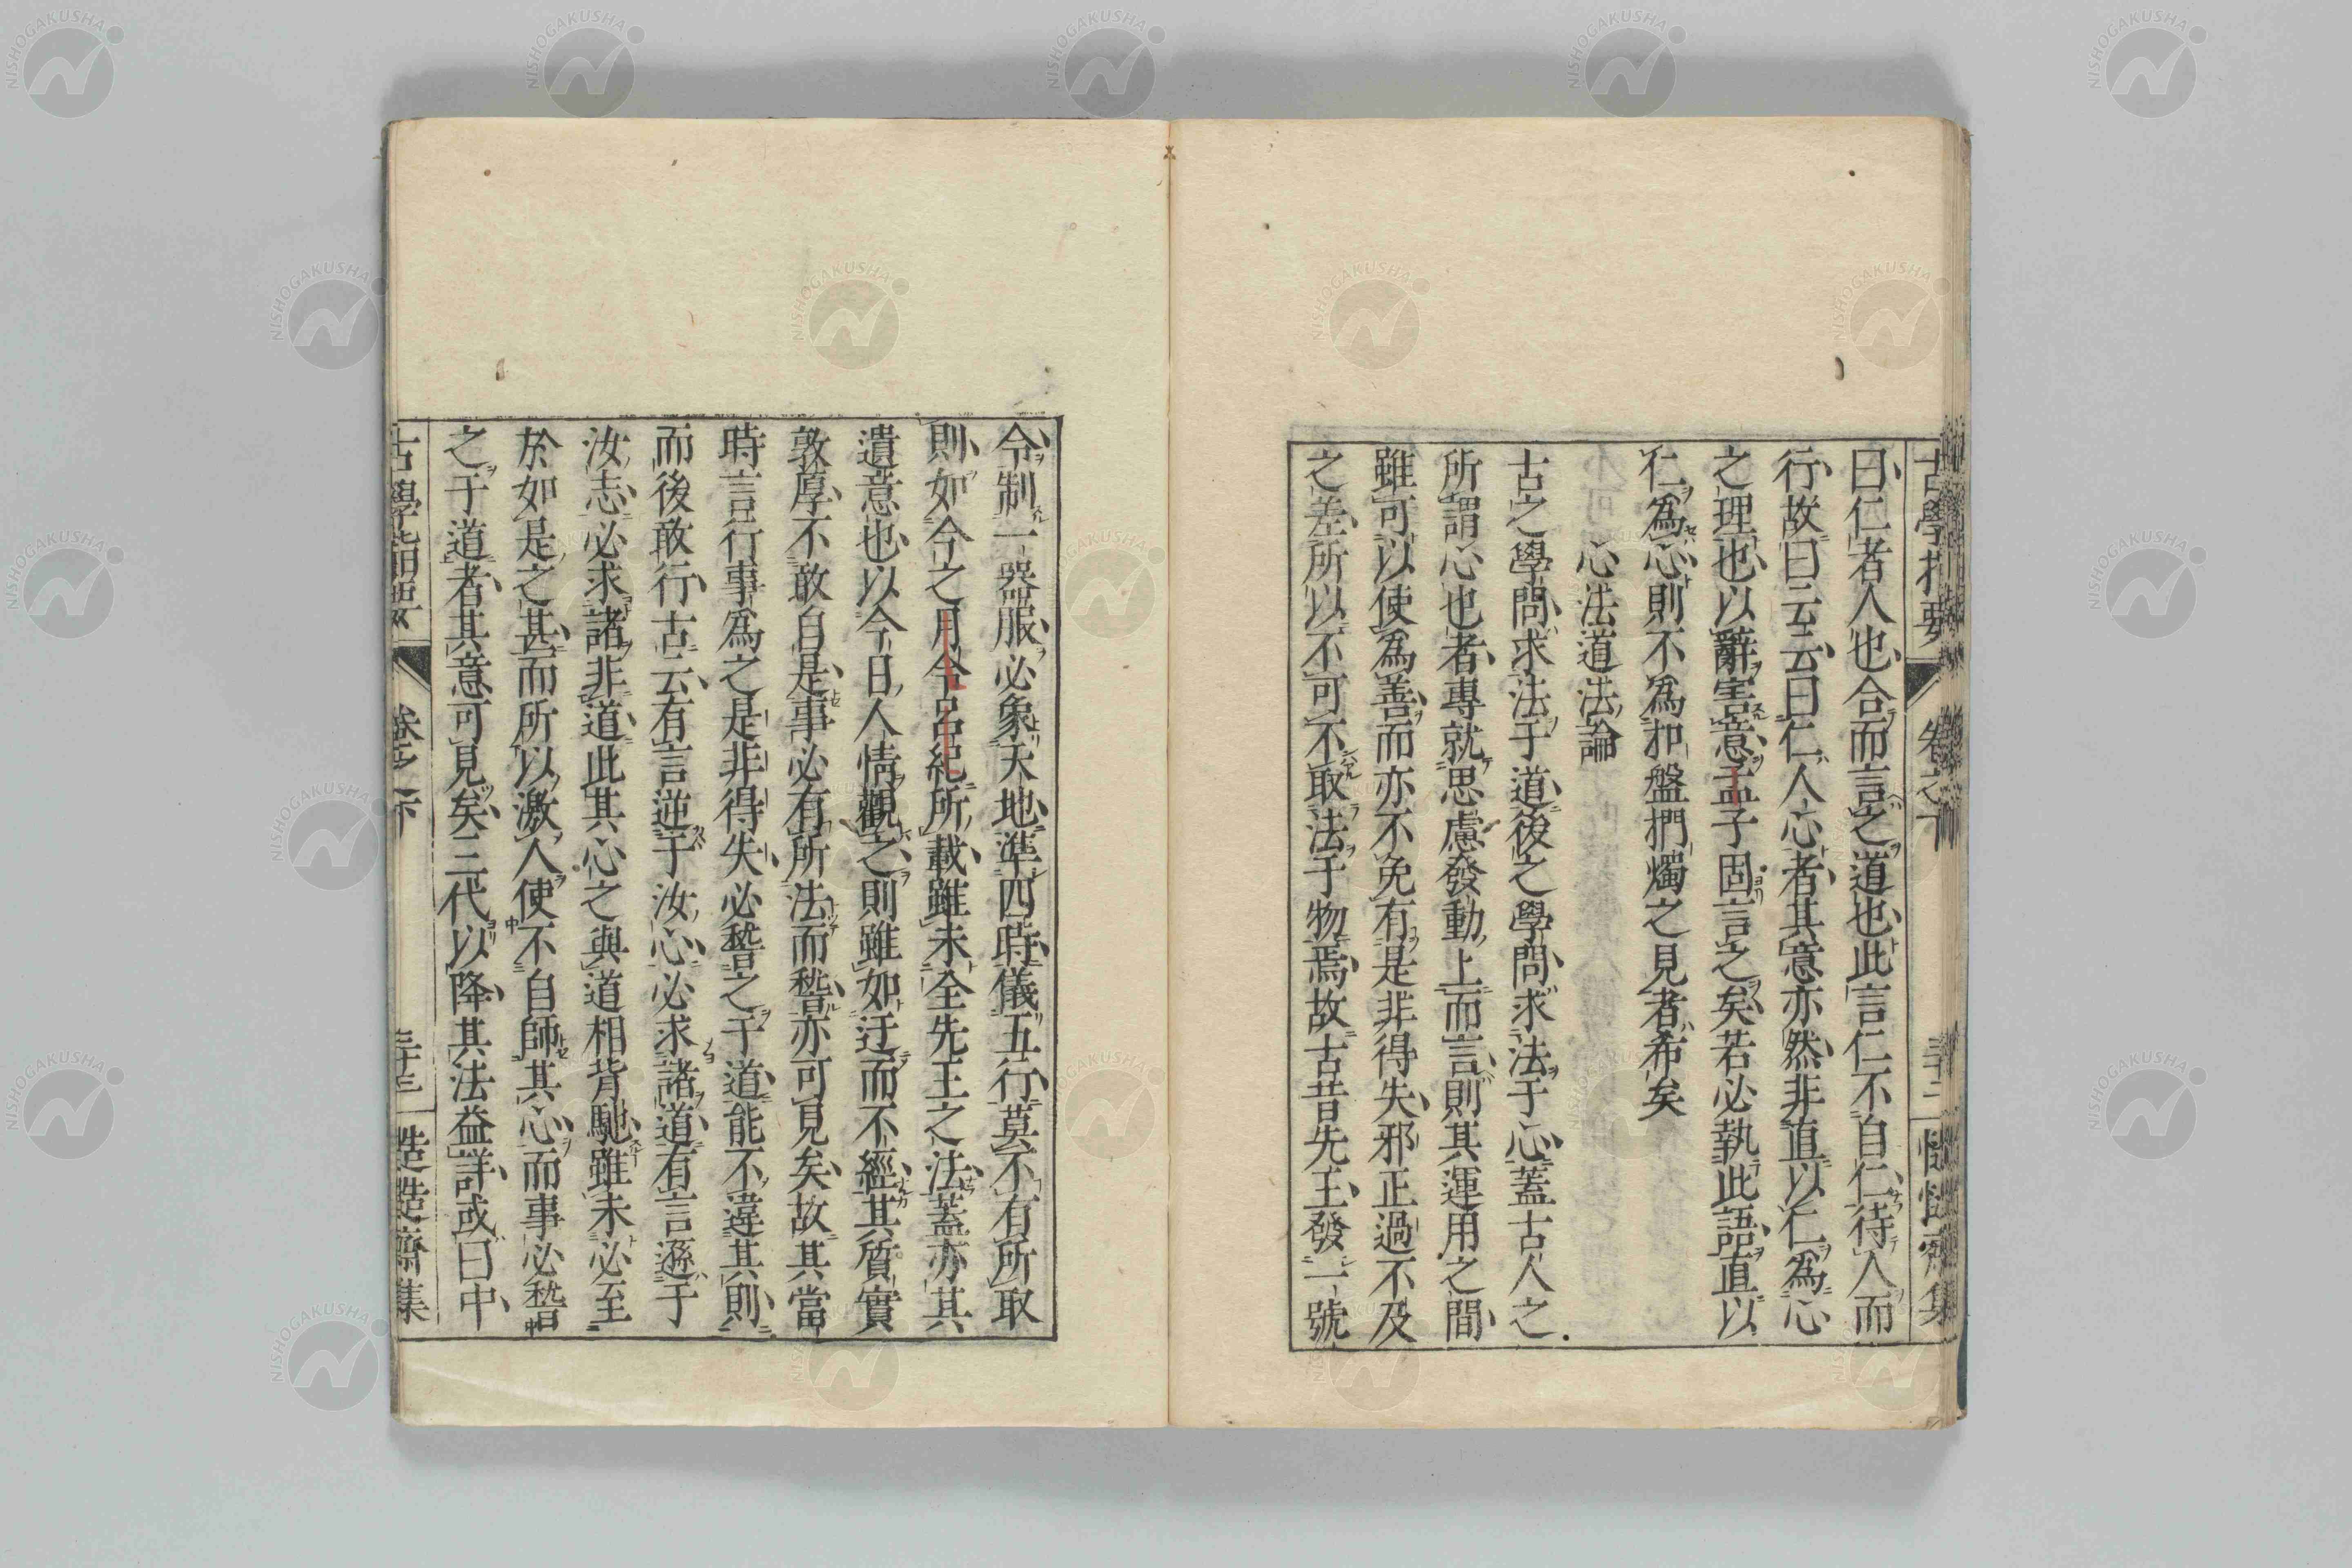 曰仁者人也合而言之道也此言仁不自仁待人而
行故曰云云曰仁人心者其意亦然非直以仁為心
之理也以辭害意孟子固言之矣若必執此語直以
仁為心則不為扣盤捫燭之見者希矣
心法道法論
古之學問求法于道後之學問求法于心蓋古人之
所謂心也者專就思慮發動上而言則其運用之間
雖可以使為善而亦不免有是非得失邪正過不及
之差所以不可不取法于物焉故古昔先王發一號
令制一器服必象天地準四時儀五行莫不有所取
則如今之月令呂紀所載雖未全先王之法蓋亦其
遺意也以今日人情觀之則雖如迂而不經其質實
敦厚不敢自是事必有所法而稽亦可見矣故其當
時言行事為之是非得失必稽之于道能不違其則
而後敢行古云有言逆于汝心必求諸道有言遜于
汝志必求諸非道此其心之與道相背馳雖未必至
於如是之甚而所以激人使不自師其心而事必稽
之于道者其意可見矣三代以降其法益詳或曰中
古學指要 卷之下 三十三